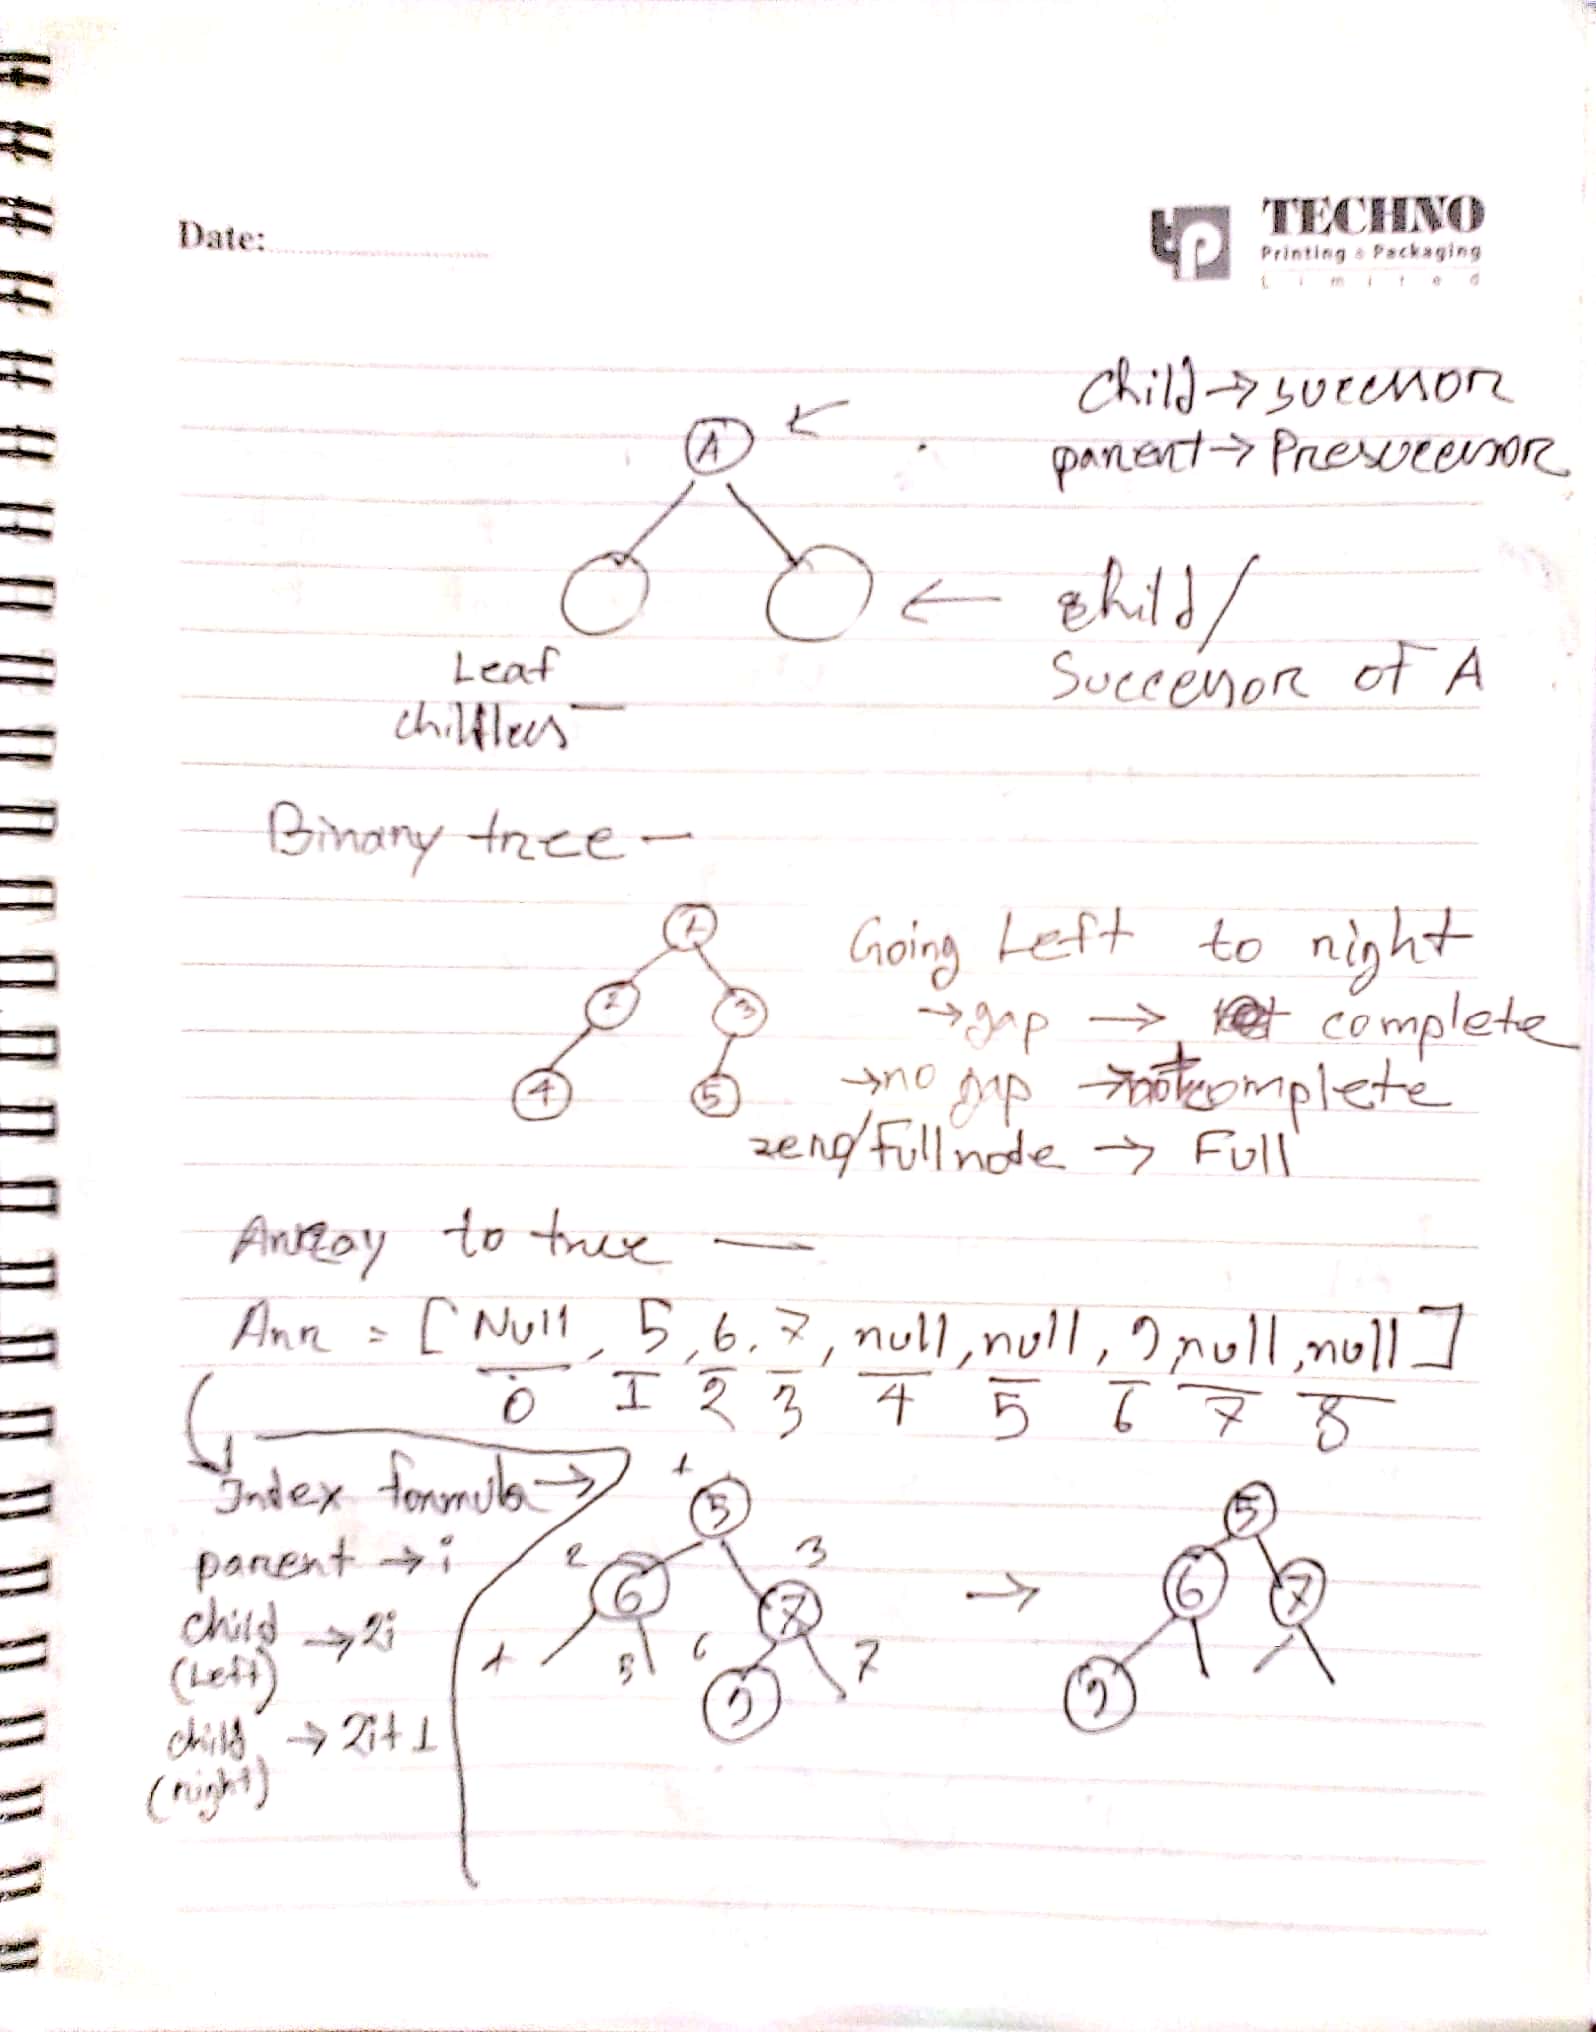 Date:
TECHNO
Printing & Packaging
Limited
Child → successor
parent → Presuccessor
A
child/
Successor of A
Leaf
childless
Binary tree –
1
2 3
4 5
Going Left to right
→ gap → complete
→ no gap → not complete
zero/Full node → Full
Array to tree —
Arr = [Null, 5, 6, 7, null, null, 9, null, null]
0 1 2 3 4 5 6 7 8
Index formula →
parent → i
child → 2i
(Left)
child → 2i+1
(right)
1
5
2 3
6 7
4 5 6 7
9
→
5
6 7
9